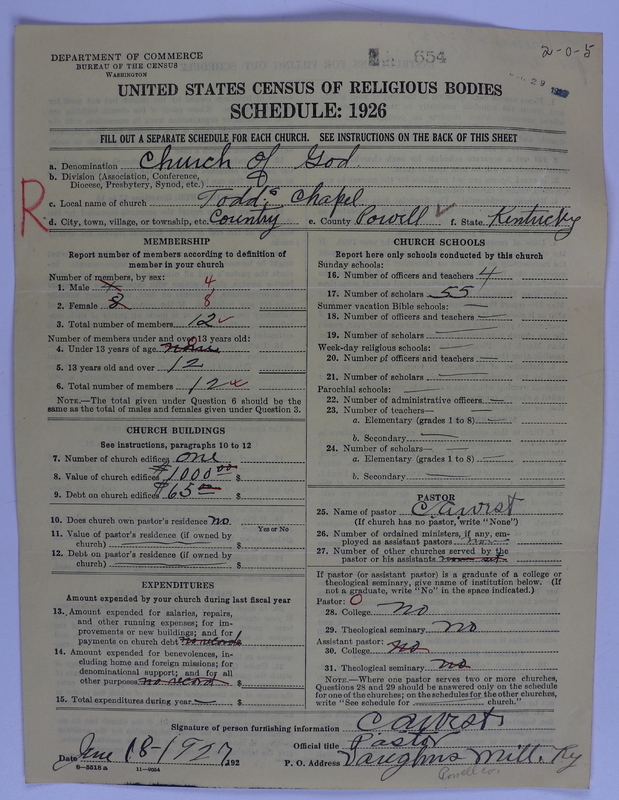 654
2-0-5
DEPARTMENT OF COMMERCE
BUREAU OF THE CENSUS
WASHINGTON
29
UNITED STATES CENSUS OF RELIGIOUS BODIES
SCHEDULE: 1926
FILL OUT A SEPARATE SCHEDULE FOR EACH CHURCH. SEE INSTRUCTIONS ON THE BACK OF THIS SHEET
a. Denomination Church of God
b. Division (Association, Conference,
Diocese, Presbytery, Synod, etc.)
c. Local name of church Todd's Chapel
R
d. City, town, village, or township, etc. Country e. County Powell ✓ f. State Kentucky
MEMBERSHIP
Report number of members according to definition of
member in your church
Number of members, by sex:
1. Male 4
2. Female 8 8
3. Total number of members 12 ✓
Number of members under and over 13 years old:
4. Under 13 years of age none
5. 13 years old and over 12
6. Total number of members 12
NOTE.—The total given under Question 6 should be
same as the total of males and females given under Question 3.
CHURCH BUILDINGS
See instructions, paragraphs 10 to 12
7. Number of church edifices one
8. Value of church edifices $1000.00 $
9. Debt on church edifices $65 $
10. Does church own pastor's residence no
Yes or No
11. Value of pastor's residence (if owned by
church) $
12. Debt on pastor's residence (if owned by
church) $
EXPENDITURES
Amount expended by your church during last fiscal year
13. Amount expended for salaries, repairs,
and other running expenses; for im-
provements or new buildings; and for
payments on church debt no records $
14. Amount expended for benevolences, in-
cluding home and foreign missions; for
denominational support; and for all
other purposes no record $
15. Total expenditures during year $
CHURCH SCHOOLS
Report here only schools conducted by this church
Sunday schools:
16. Number of officers and teachers 4
17. Number of scholars 55
Summer vacation Bible schools:
18. Number of officers and teachers
19. Number of scholars
Week-day religious schools:
20. Number of officers and teachers
21. Number of scholars
Parochial schools:
22. Number of administrative officers
23. Number of teachers—
a. Elementary (grades 1 to 8)
b. Secondary
24. Number of scholars—
a. Elementary (grades 1 to 8)
b. Secondary
PASTOR
25. Name of pastor
(If church has no pastor, write "None")
26. Number of ordined ministers, if any, em-
ployed as assistant pastors
27. Number of other churches served by the
pastor or his assistants
If pastor (or assistant pastor) is a graduate of a college or
theological seminary, give name of institution below. (If
not a graduate, write "No" in the space indicated.)
Pastor: 0
28. College no
29. Theological seminary no
Assistant pastor:
30. College no
31. Theological seminary no
NOTE.—Where one pastor serves two or more churches,
Questions 28 and 29 should be answered only on the schedule
for one of the churches; on the schedules for the other churches,
write "See schedule for church."
Signature of person furnishing information
Date June 18-1927, 192 Official title Pastor
8-5516 a 11-9054 P. O. Address Vaughns Mill. Ky
Powell co.